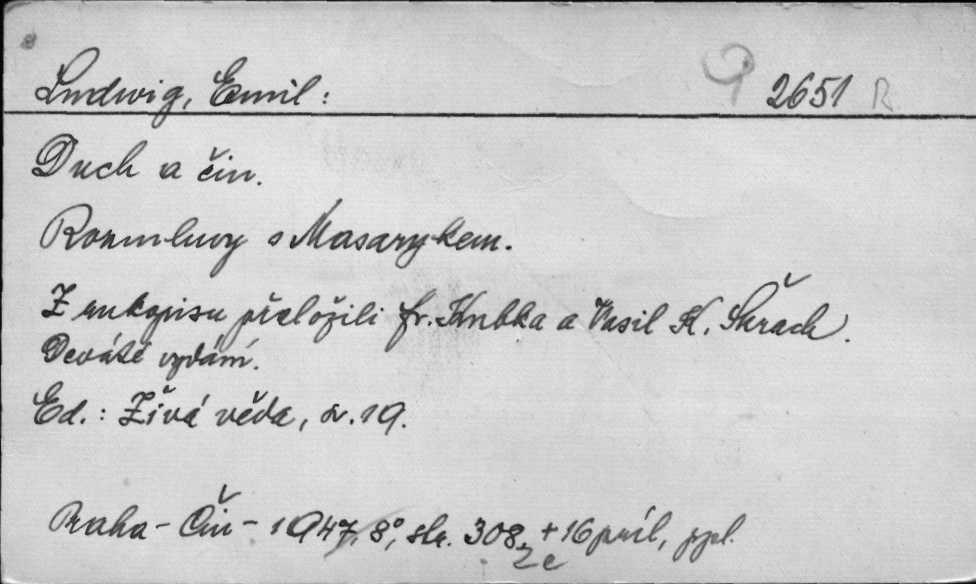 Ludwig, Emil: 9 2651 R
Duch a čin.
Rozmluvy s Masarykem.
Z rukopisu přeložili Fr. Kubka a Vasil K. Škrach.
Deváté vydání.
Ed.: Živá věda, sv. 19.
Praha - Čin - 1947, 8°, str. 308, + 16 příl,